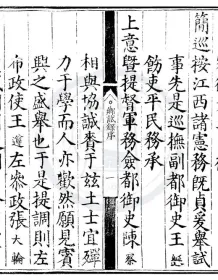 簡巡按江西諸憲務既貞爰舉試
事先是巡撫副都御史王
飭吏平民務承
上意暨提督軍務僉都御史陳察
錄序
相與協誠賛于兹土士宜殫
力于學而人亦歡然願見賔
興之盛舉也于是提調則左
布政使王 左叅政張大輪